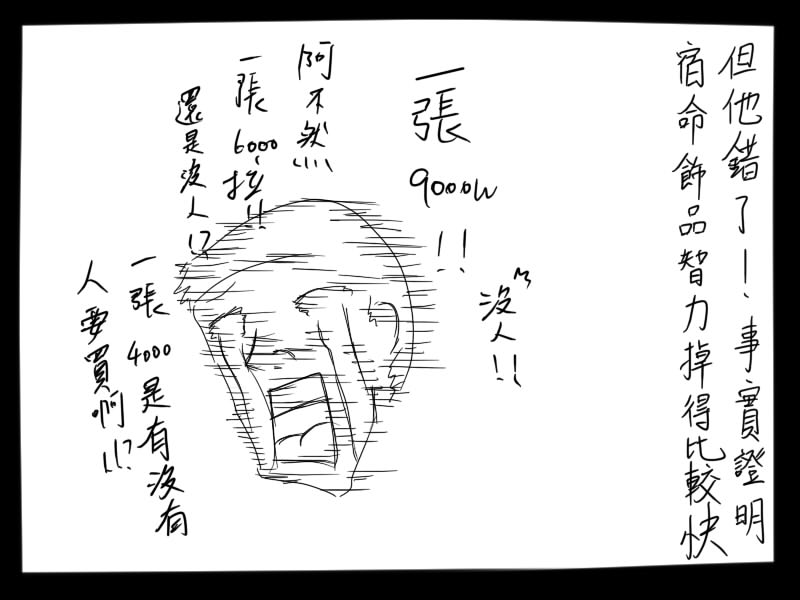 但他錯了！、事實證明
宿命飾品智力掉得比較快
一張
9000W
!!
沒人!!
阿不然
一張6000拉!!
還是沒人!?
一張4000是有沒有
人要買啊!!?